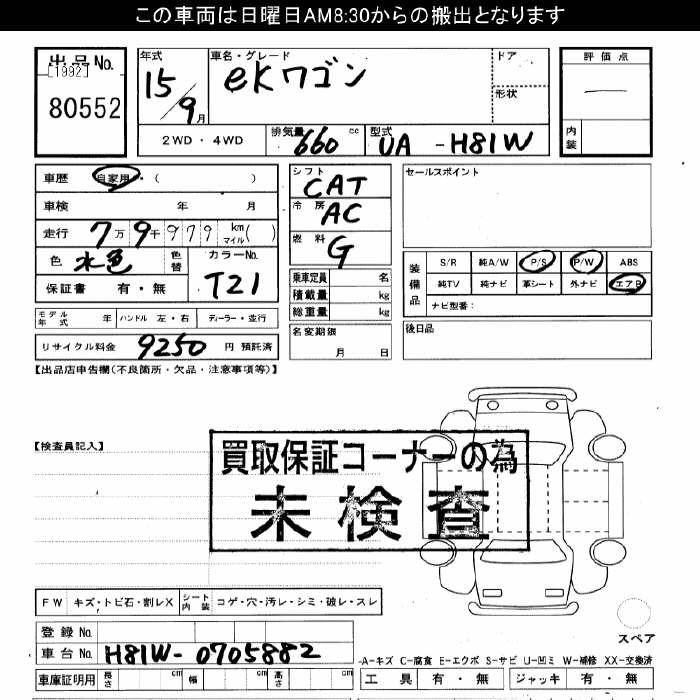 この車両は日曜日AM8:30からの搬出となります
出品No.
[1992]
80552
年式 15/9月
車名・グレード eKワゴン
ドア
形状
評価点
—
内装
2WD・4WD
排気量 660 cc
型式 UA-H81W
車歴 自家用・( )
車検 年 月
走行 7万9千979 km マイル( )
色 水色 色替
カラーNo. T21
保証書 有・無
シフト CAT
冷房 AC
燃料 G
乗車定員 名
積載量 kg
総重量 kg
セールスポイント
装備品
S/R 純A/W P/S P/W ABS
純TV 純ナビ 革シート 外ナビ エアB
ナビ型番:
モデル年式 年 ハンドル 左・右 ディーラー・並行
名変期限 月 日
後日品
リサイクル料金 9250 円 預託済
【出品店申告欄(不良箇所・欠品・注意事項等)】
【検査員記入】
買取保証コーナーの為
未検査
FW キズ・トビ石・割レX シート内装 コゲ・穴・汚レ・シミ・破レ・スレ
スペア
登録No.
車台No. H81W-0705882
-A-キズ C-腐食 E-エクボ S-サビ U-凹ミ W-補修 XX-交換済
車庫証明用 長さ cm 幅 cm 高さ cm
工具 有・無 ジャッキ 有・無